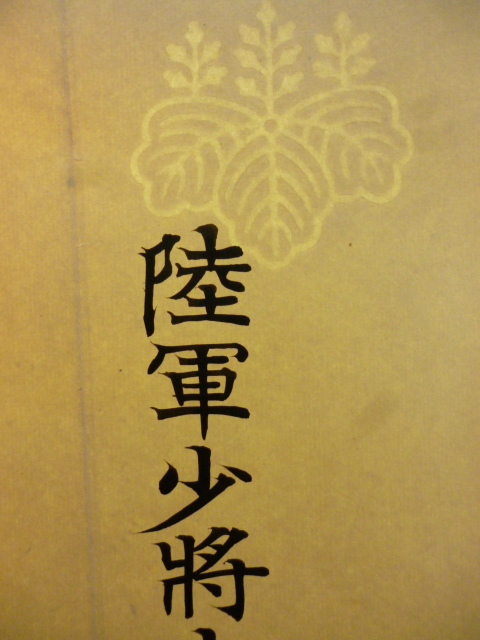 陸軍少將